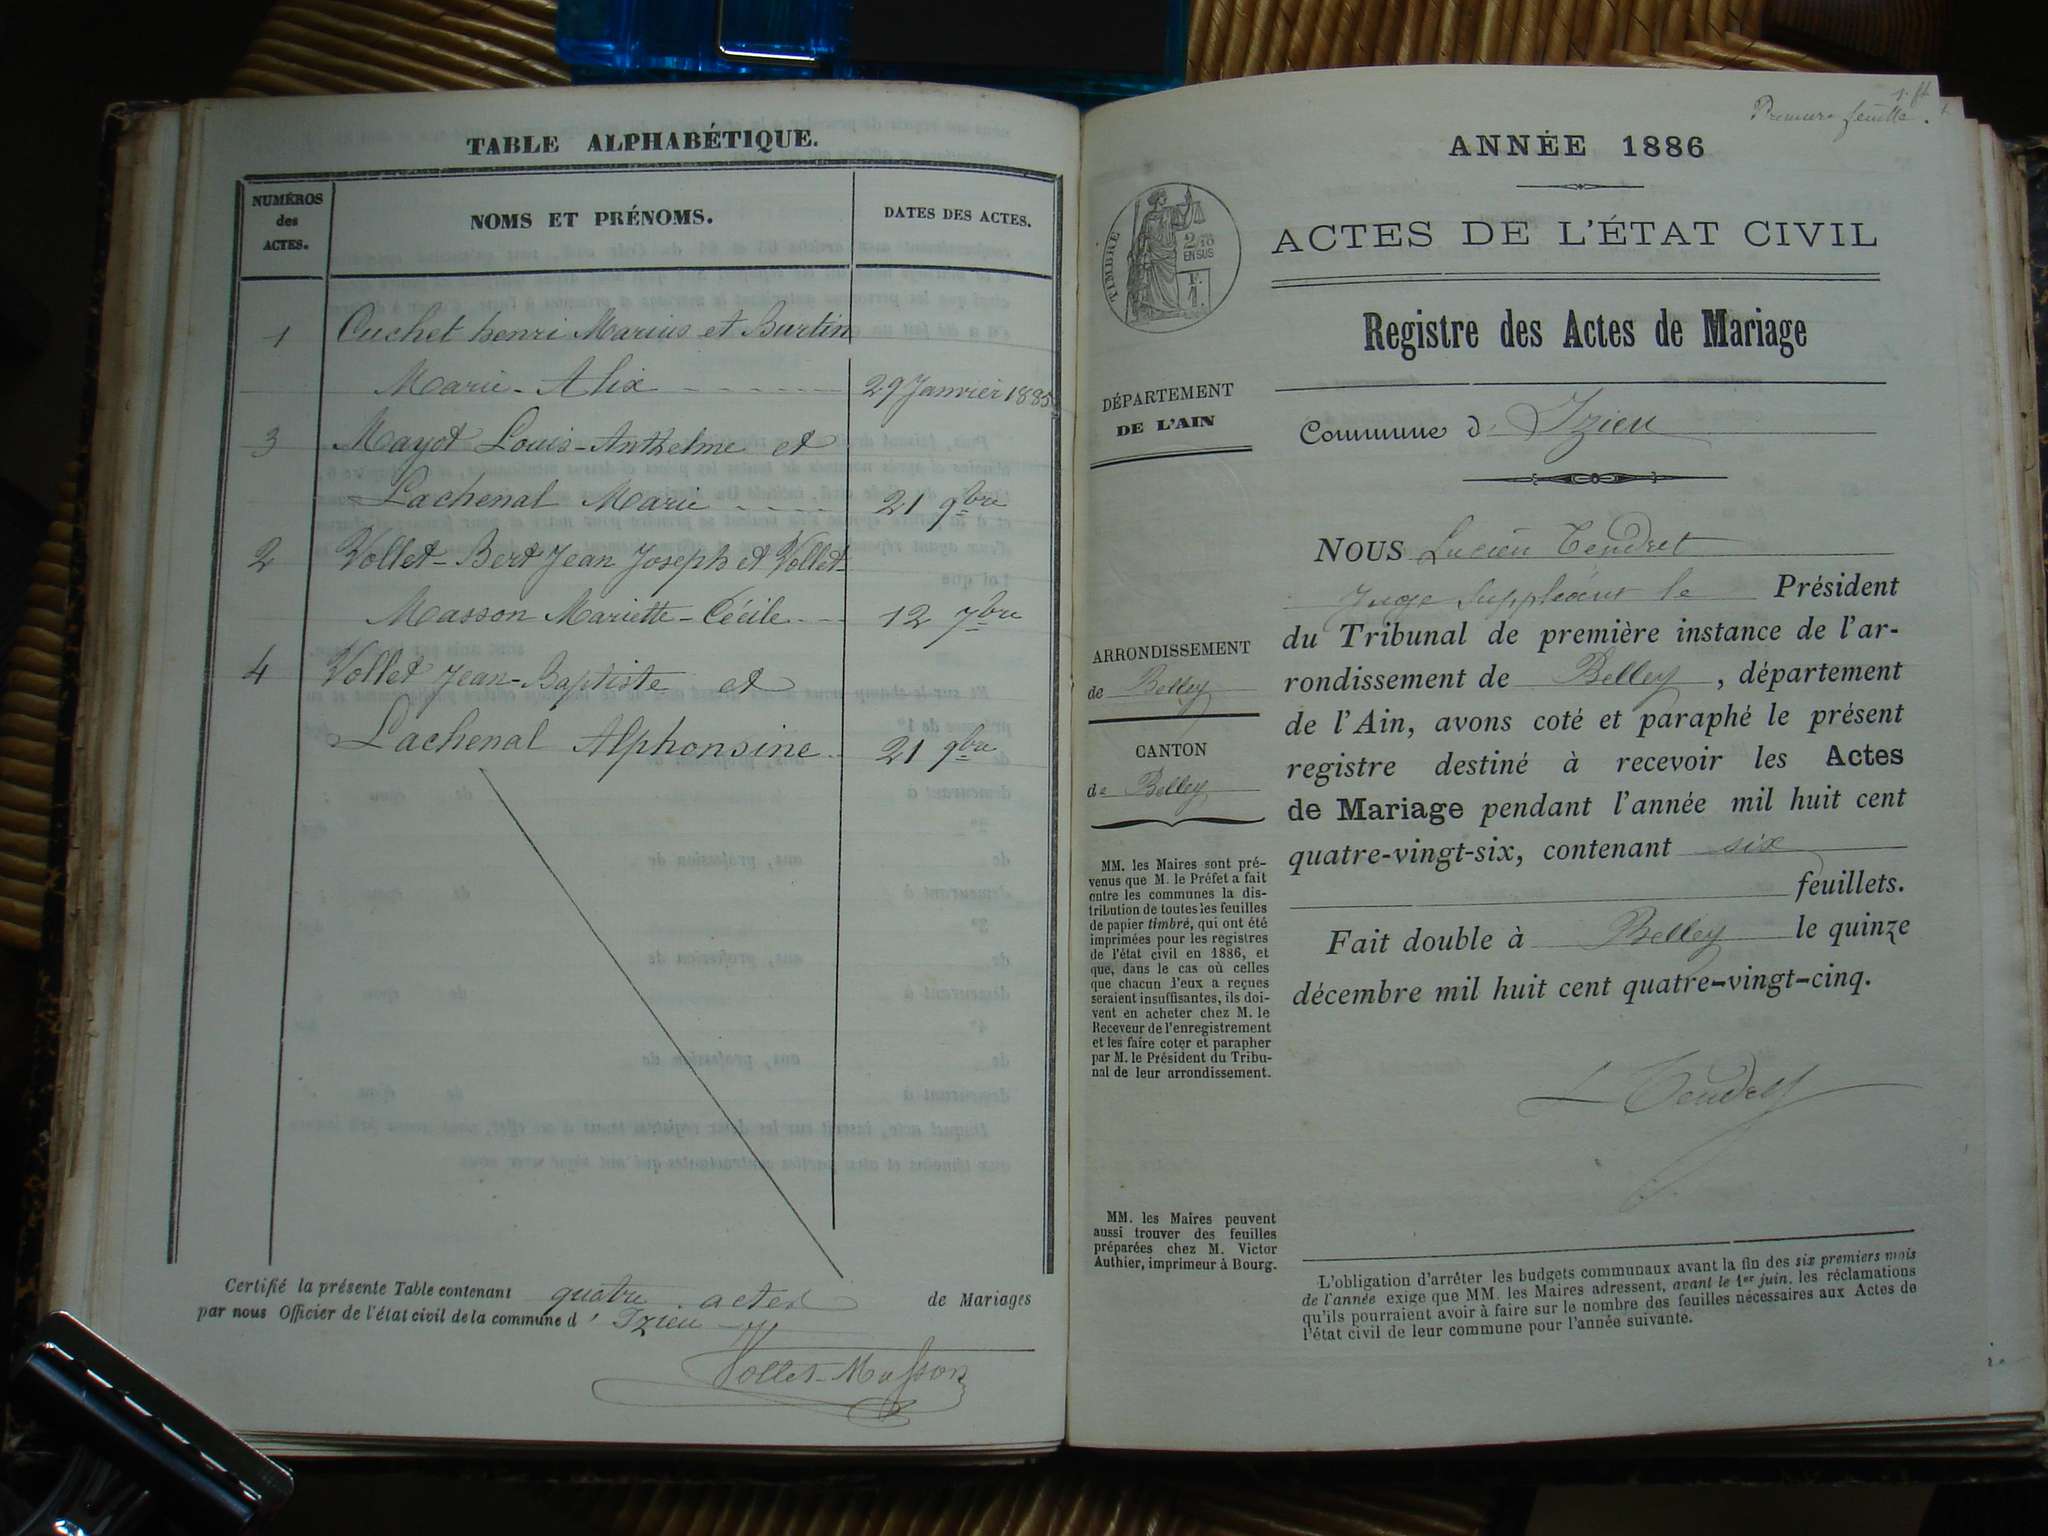 TABLE ALPHABÉTIQUE.
NUMÉROS
des
ACTES.
NOMS ET PRÉNOMS.
DATES DES ACTES.
1 Cuchet henri Marius et Burtin
Marie-Alix 29 Janvier 1885
3 Mayot Louis-Anthelme et
Lachenal Marie 21 9bre
2 Vollet-Bert Jean Joseph et Vollet-
Masson Mariette-Cécile 12 7bre
4 Vollet Jean-Baptiste et
Lachenal Alphonsine 21 9bre
Certifié la présente Table contenant quatre actes de Mariages
par nous Officier de l'état civil de la commune d'Izieu
Vollet-Masson
Premiere feuille.
ANNÉE 1886
TIMBRE
2/10
EN SUS
F.
1.
ACTES DE L'ÉTAT CIVIL
Registre des Actes de Mariage
Commune d'Izieu
DÉPARTEMENT
DE L'AIN
ARRONDISSEMENT
de Belley
CANTON
de Belley
MM. les Maires sont pré-
venus que M. le Préfet a fait
entre les communes la dis-
tribution de toutes les feuilles
de papier timbré, qui ont été
imprimées pour les registres
de l'état civil en 1886, et
que, dans le cas où celles
que chacun d'eux a reçues
seraient insuffisantes, ils doi-
vent en acheter chez M. le
Receveur de l'enregistrement
et les faire coter et parapher
par M. le Président du Tribu-
nal de leur arrondissement.
MM. les Maires peuvent
aussi trouver des feuilles
préparées chez M. Victor
Authier, imprimeur à Bourg.
NOUS Lucien Tendret
Juge Suppléant le Président
du Tribunal de première instance de l'ar-
rondissement de Belley, département
de l'Ain, avons coté et paraphé le présent
registre destiné à recevoir les Actes
de Mariage pendant l'année mil huit cent
quatre-vingt-six, contenant six
feuillets.
Fait double à Belley le quinze
décembre mil huit cent quatre-vingt-cinq.
L Tendret
L'obligation d'arrêter les budgets communaux avant la fin des six premiers mois
de l'année exige que MM. les Maires adressent, avant le 1er juin, les réclamations
qu'ils pourraient avoir à faire sur le nombre des feuilles nécessaires aux Actes de
l'état civil de leur commune pour l'année suivante.